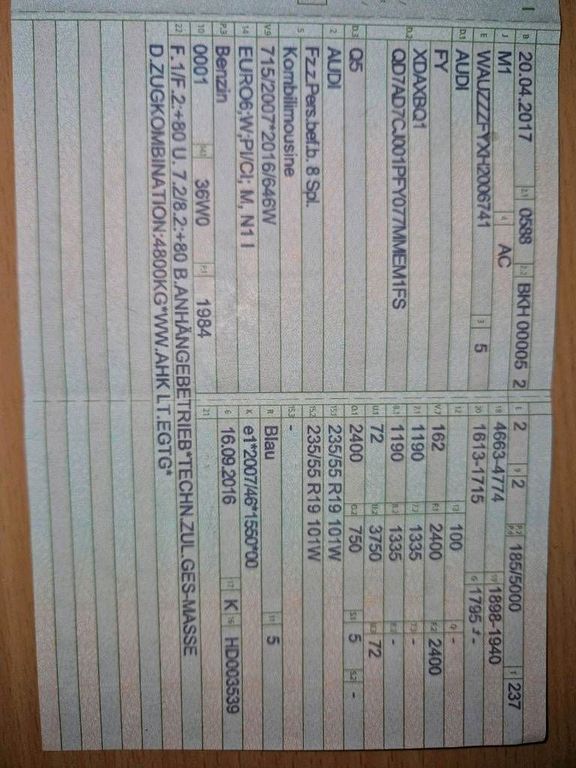 B 20.04.2017 2.1 0588 2.2 BKH 00005 2
J M1 4 AC
E WAUZZZFYXH2006741 3 5
D.1 AUDI
FY
D.2 XDAXBQ1
QD7AD7CJ001PFY077MMEM1FS
D.3 Q5
2 AUDI
Fz.z.Pers.bef.b. 8 Spl.
5 Kombilimousine
V.9 715/2007*2016/646W
14 EURO6;W;PI/CI; M, N1 I
P.3 Benzin
10 0001 14.1 36W0 P.1 1984
22 F.1/F.2:+80 U. 7.2/8.2:+80 B.ANHÄNGEBETRIEB*TECHN.ZUL.GES-MASSE
D.ZUGKOMBINATION:4800KG*WW.AHK LT.EGTG*
L 2 9 2 P.2 P.4 185/5000 T 237
18 4663-4774 19 1898-1940
20 1613-1715 G 1795 - -
12 13 100 Q -
V.7 162 F.1 2400 F.2 2400
7.1 1190 7.2 1335 7.3 -
8.1 1190 8.2 1335 8.3 -
U.1 72 U.2 3750 U.3 72
O.1 2400 O.2 750 S.1 5 S.2 -
15.1 235/55 R19 101W
15.2 235/55 R19 101W
15.3 -
R Blau 11 5
K e1*2007/46*1550*00
6 16.09.2016 17 K 16 HD003539
21